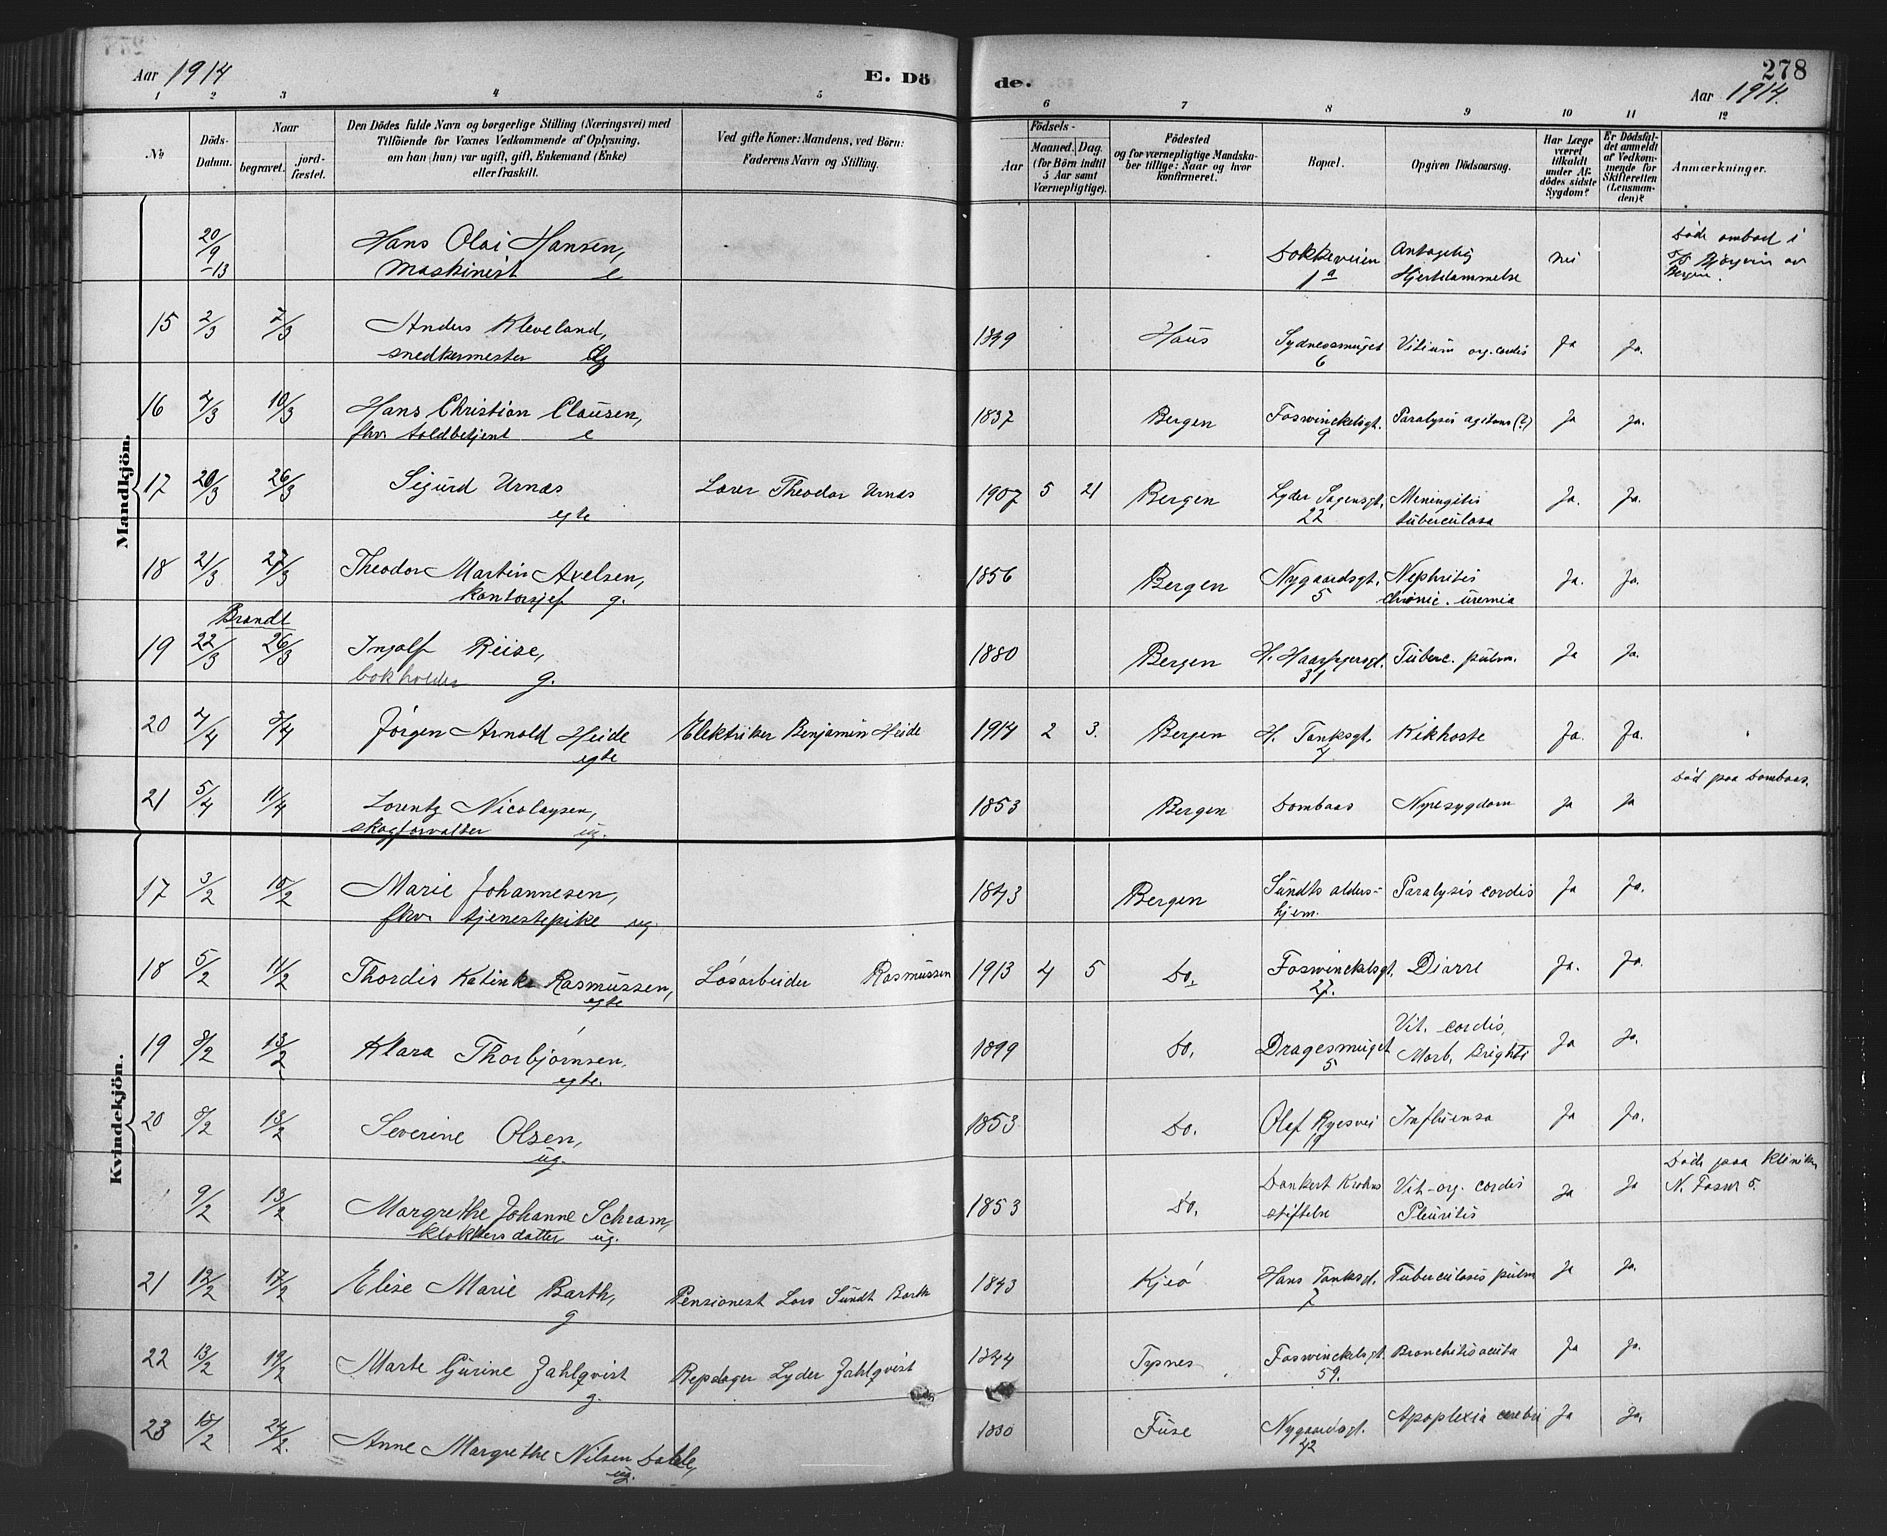 278
Aar 1914
E. Döde.
Aar 1914.
1 2 3 4 5 6 7 8 9 10 11 12
No
Döds-Datum.
Naar
begravet.
jord-fæstet.
Den Dödes fulde Navn og borgerlige Stilling (Næringsvei) med
Tilföiende for Voxnes Vedkommende af Oplysning,
om han (hun) var ugift, gift, Enkemand (Enke)
eller fraskilt.
Ved gifte Koner: Mandens, ved Börn:
Faderens Navn og Stilling.
Födsels-
Aar
Maaned. Dag.
(for Börn indtil
5 Aar samt
Værnepligtige).
Födested
og for værnepligtige Mandsku-
ber tillige: Naar og hvor
konfirmeret.
Bopæl.
Opgiven Dödsaarsag.
Har Læge
været
tilkaldt
under Af-
dödes sidste
Sygdom?
Er Dödsfal-
det anmeldt
af Vedkom-
mende for
Skifteretten
(Lensman-
den)?
Anmærkninger.
Mandkjön.
20/9 -13 Hans Olai Hansen, Dokkeveien Antagelig nei Døde ombord i
maskinist e 1a Hjertelammelse
Bergen.
15 2/3 7/3 Anders Kleveland, 1849 Haus Sydnessmuget Vitium org. cordis Ja Ja.
snedkermester 6
16 4/3 10/3 Hans Christian Clausen, 1837 Bergen Foswinckelsgt. Paralysis agitans (?) Ja Ja.
fhv. toldbetjent e 9
17 20/3 26/3 Sigurd Urnes Lærer Theodor Urnes 1907 5 21 Bergen Lyder Sagensgt. Meningitis Ja. Ja.
egte 22 tuberculosa
18 21/3 27/3 Theodor Martin Axelsen, 1856 Bergen Nygaardsgt. Nephritis Ja. Ja.
kontorsjef g. 5 chronic. uremia
Brandt
19 22/3 26/3 Ingolf Reise, 1880 Bergen H. Haarfagersgt. Tuberc. pulm. Ja Ja.
bokholder g. 31
20 2/4 8/4 Jørgen Arnold Heide Elektriker Benjamin Heide 1914 2 3. Bergen H. Tanksgt. Kikhoste Ja. Ja.
egte 4
21 5/4 11/4 Lorentz Nicolaysen, 1853 Bergen Dombaas Nyresygdom Ja Ja Død paa Dombaas.
skogforvalter ug.
Kvindekjön.
17 3/2 10/2 Marie Johannesen, 1843 Bergen Sundts alders- Paralysis cordis Ja Ja.
fhv. tjenestepike ug hjem.
18 5/2 11/2 Thordis Katinka Rasmussen, Løsarbeider Rasmussen 1913 4 5 Do. Foswinckelsgt. Diarre Ja. Ja.
egte 27.
19 8/2 13/2 Klara Thorbjørnsen, 1899 Do. Dragesmuget Vit. cordis, Ja Ja.
egte. 5 Morb. Brighti
20 8/2 13/2 Severine Olsen, 1853 Do. Olaf Ryesvei Influensa Ja Ja.
ug.
9/2 13/2 Margrethe Johanne Schram, 1853 Do. Dankert Krohns Vit. org. cordis Ja Ja Døde paa klinikken
klokkersdatter ug. stiftelse Pleuritis
21 12/2 17/2 Elise Marie Barth, Pensionist Lars Sundt Barth 1843 Kjeø Hans Tanksgt. Tuberculosis pulm Ja Ja.
g 7
22 13/2 19/2 Marte Gurine Zahlqvist Repslager Lyder Zahlqvist 1844 Tysnes Foswinckelsgt. Bronchitis acuta Ja Ja.
g. 59.
23 18/2 24/2. Anne Margrethe Nilsen Dahle, 1830 Fuse Nygaardsgt. Apoplexia cerebri Ja Ja.
ug. 42